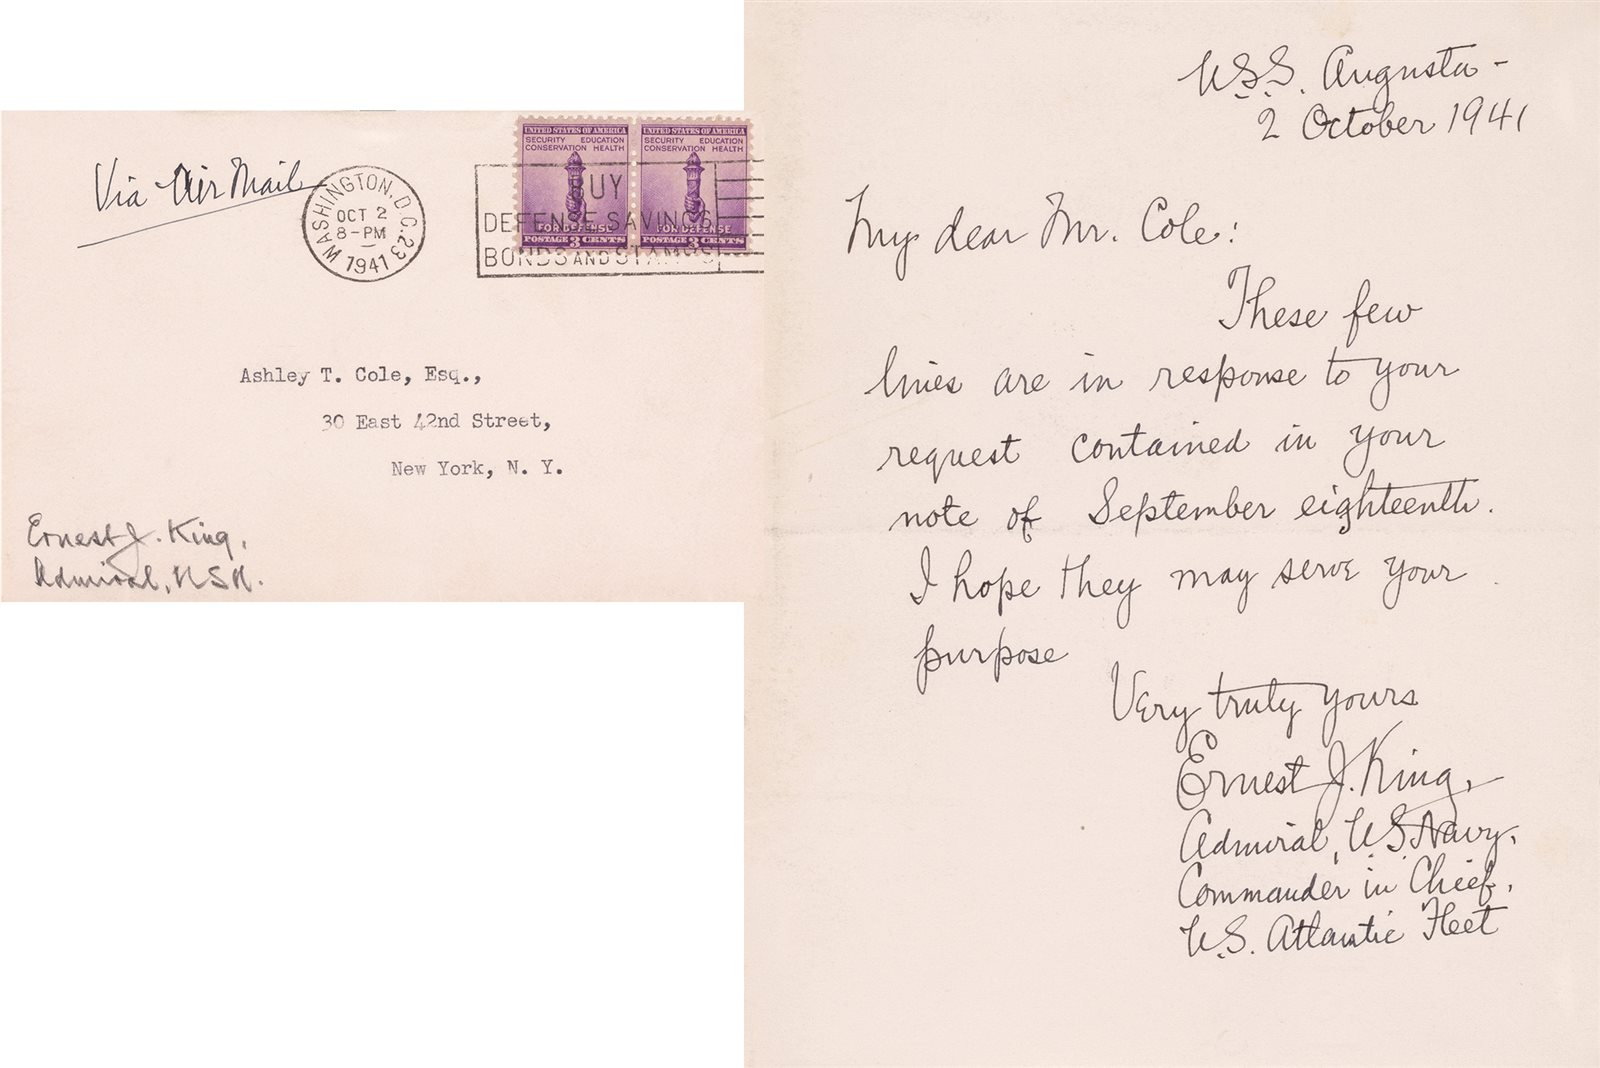 Via Air Mail
WASHINGTON, D.C. 23
OCT 2
8-PM
1941
UNITED STATES OF AMERICA
SECURITY EDUCATION
CONSERVATION HEALTH
FOR DEFENSE
POSTAGE 3 CENTS
UNITED STATES OF AMERICA
SECURITY EDUCATION
CONSERVATION HEALTH
FOR DEFENSE
POSTAGE 3 CENTS
BUY
DEFENSE SAVINGS
BONDS AND STAMPS
Ashley T. Cole, Esq.,
30 East 42nd Street,
New York, N. Y.
Ernest J. King,
Admiral, USN.
U.S.S. Augusta -
2 October 1941
My dear Mr. Cole:
These few
lines are in response to your
request contained in your
note of September eighteenth.
I hope they may serve your
purpose
Very truly yours
Ernest J. King,
Admiral, U.S. Navy,
Commander in Chief,
U.S. Atlantic Fleet